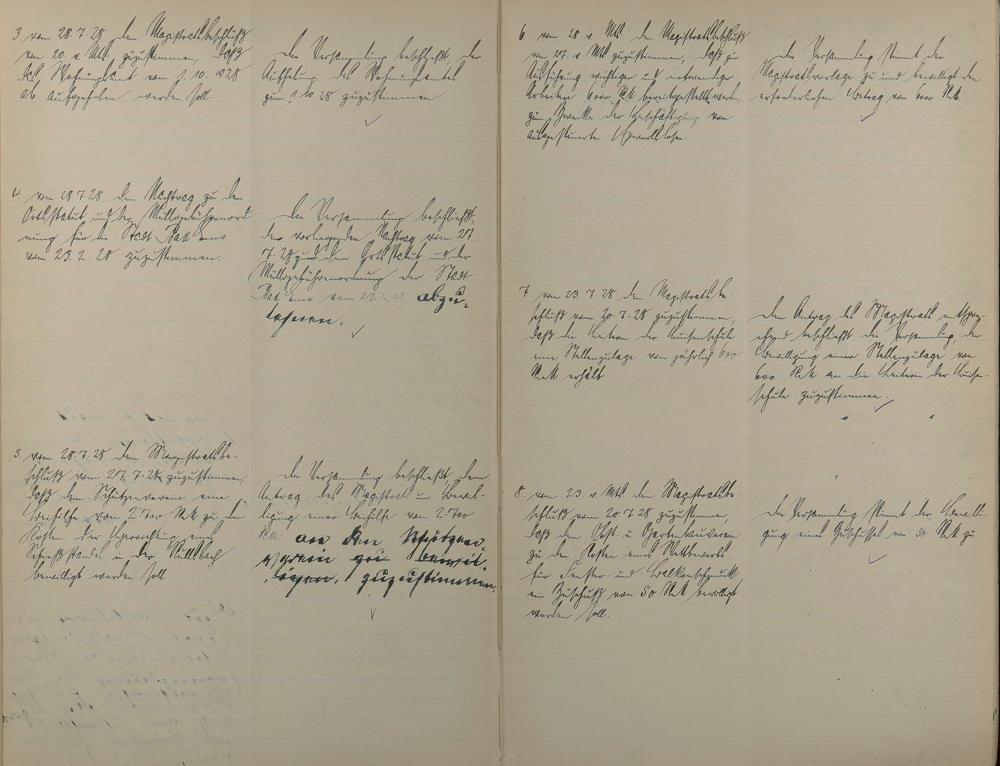 3. vom 28.7.28 dem Magistratsbeschluß
vom 20. v. Mts zuzustimmen, daß
das Wohnungsamt vom 1.10.1928
ab aufgehoben werden soll.
Die Versammlung beschließt, der
Aufhebung des Wohnungsamtes
zum 1.10.28 zuzustimmen
4. vom 28.7.28 dem Nachtrag zu dem
Ortsstatut und der Müllgebührenord
nung für die Stadt Bad Ems
vom 23.2.28 zuzustimmen.
Die Versammlung beschließt,
den vorliegenden Nachtrag vom 27.
7.28 zu dem Ortsstatut und der
Müllgebührenordnung der Stadt
Bad Ems vom 23.2.28 abzu-
lehnen.
5. vom 28.7.28 dem Magistratsbe-
schluß vom 27.7.28 zuzustimmen,
daß dem Schützenverein eine
Beihilfe von 2700 RM zu den
Kosten der Herrichtung eines
Schießstandes in der
bewilligt werden soll
Die Versammlung beschließt, dem
Antrag des Magistrats um Bewil-
ligung einer Beihilfe von 2700
RM an den Schützen-
verein zu bewil-
ligen, zuzustimmen.
6. vom 28 v. Mts. dem Magistratsbeschluß
vom 27. v. Mts zuzustimmen, daß zur
Ausführung wichtiger und notwendiger
Arbeiten 6000 RM bereitgestellt werden
zum Zwecke der Beschäftigung von
ausgesteuerten Erwerbslosen.
Die Versammlung stimmt der
Magistratsvorlage zu und bewilligt den
erforderlichen Betrag von 6000 RM.
7. vom 23.7.28 dem Magistratsbe-
schluß vom 20.7.28 zuzustimmen,
daß die Leiterin der Luisenschule
eine Stellenzulage von jährlich 600
RM erhält
Dem Antrag des Magistrats entspre-
chend beschließt die Versammlung, der
Bewilligung einer Stellenzulage von
600 RM an die Leiterin der Luisen-
schule zuzustimmen.
8. vom 23. v. Mts dem Magistratsbe-
schluß vom 20.7.28 zuzustimmen,
daß dem Obst- u. Gartenbauverein
zu den Kosten eines Wettbewerbs
für Fenster- und Balkonschmuck
ein Zuschuß von 50 RM bewilligt
werden soll.
Die Versammlung stimmt der Bewilli-
gung eines Zuschusses von 50 RM zu